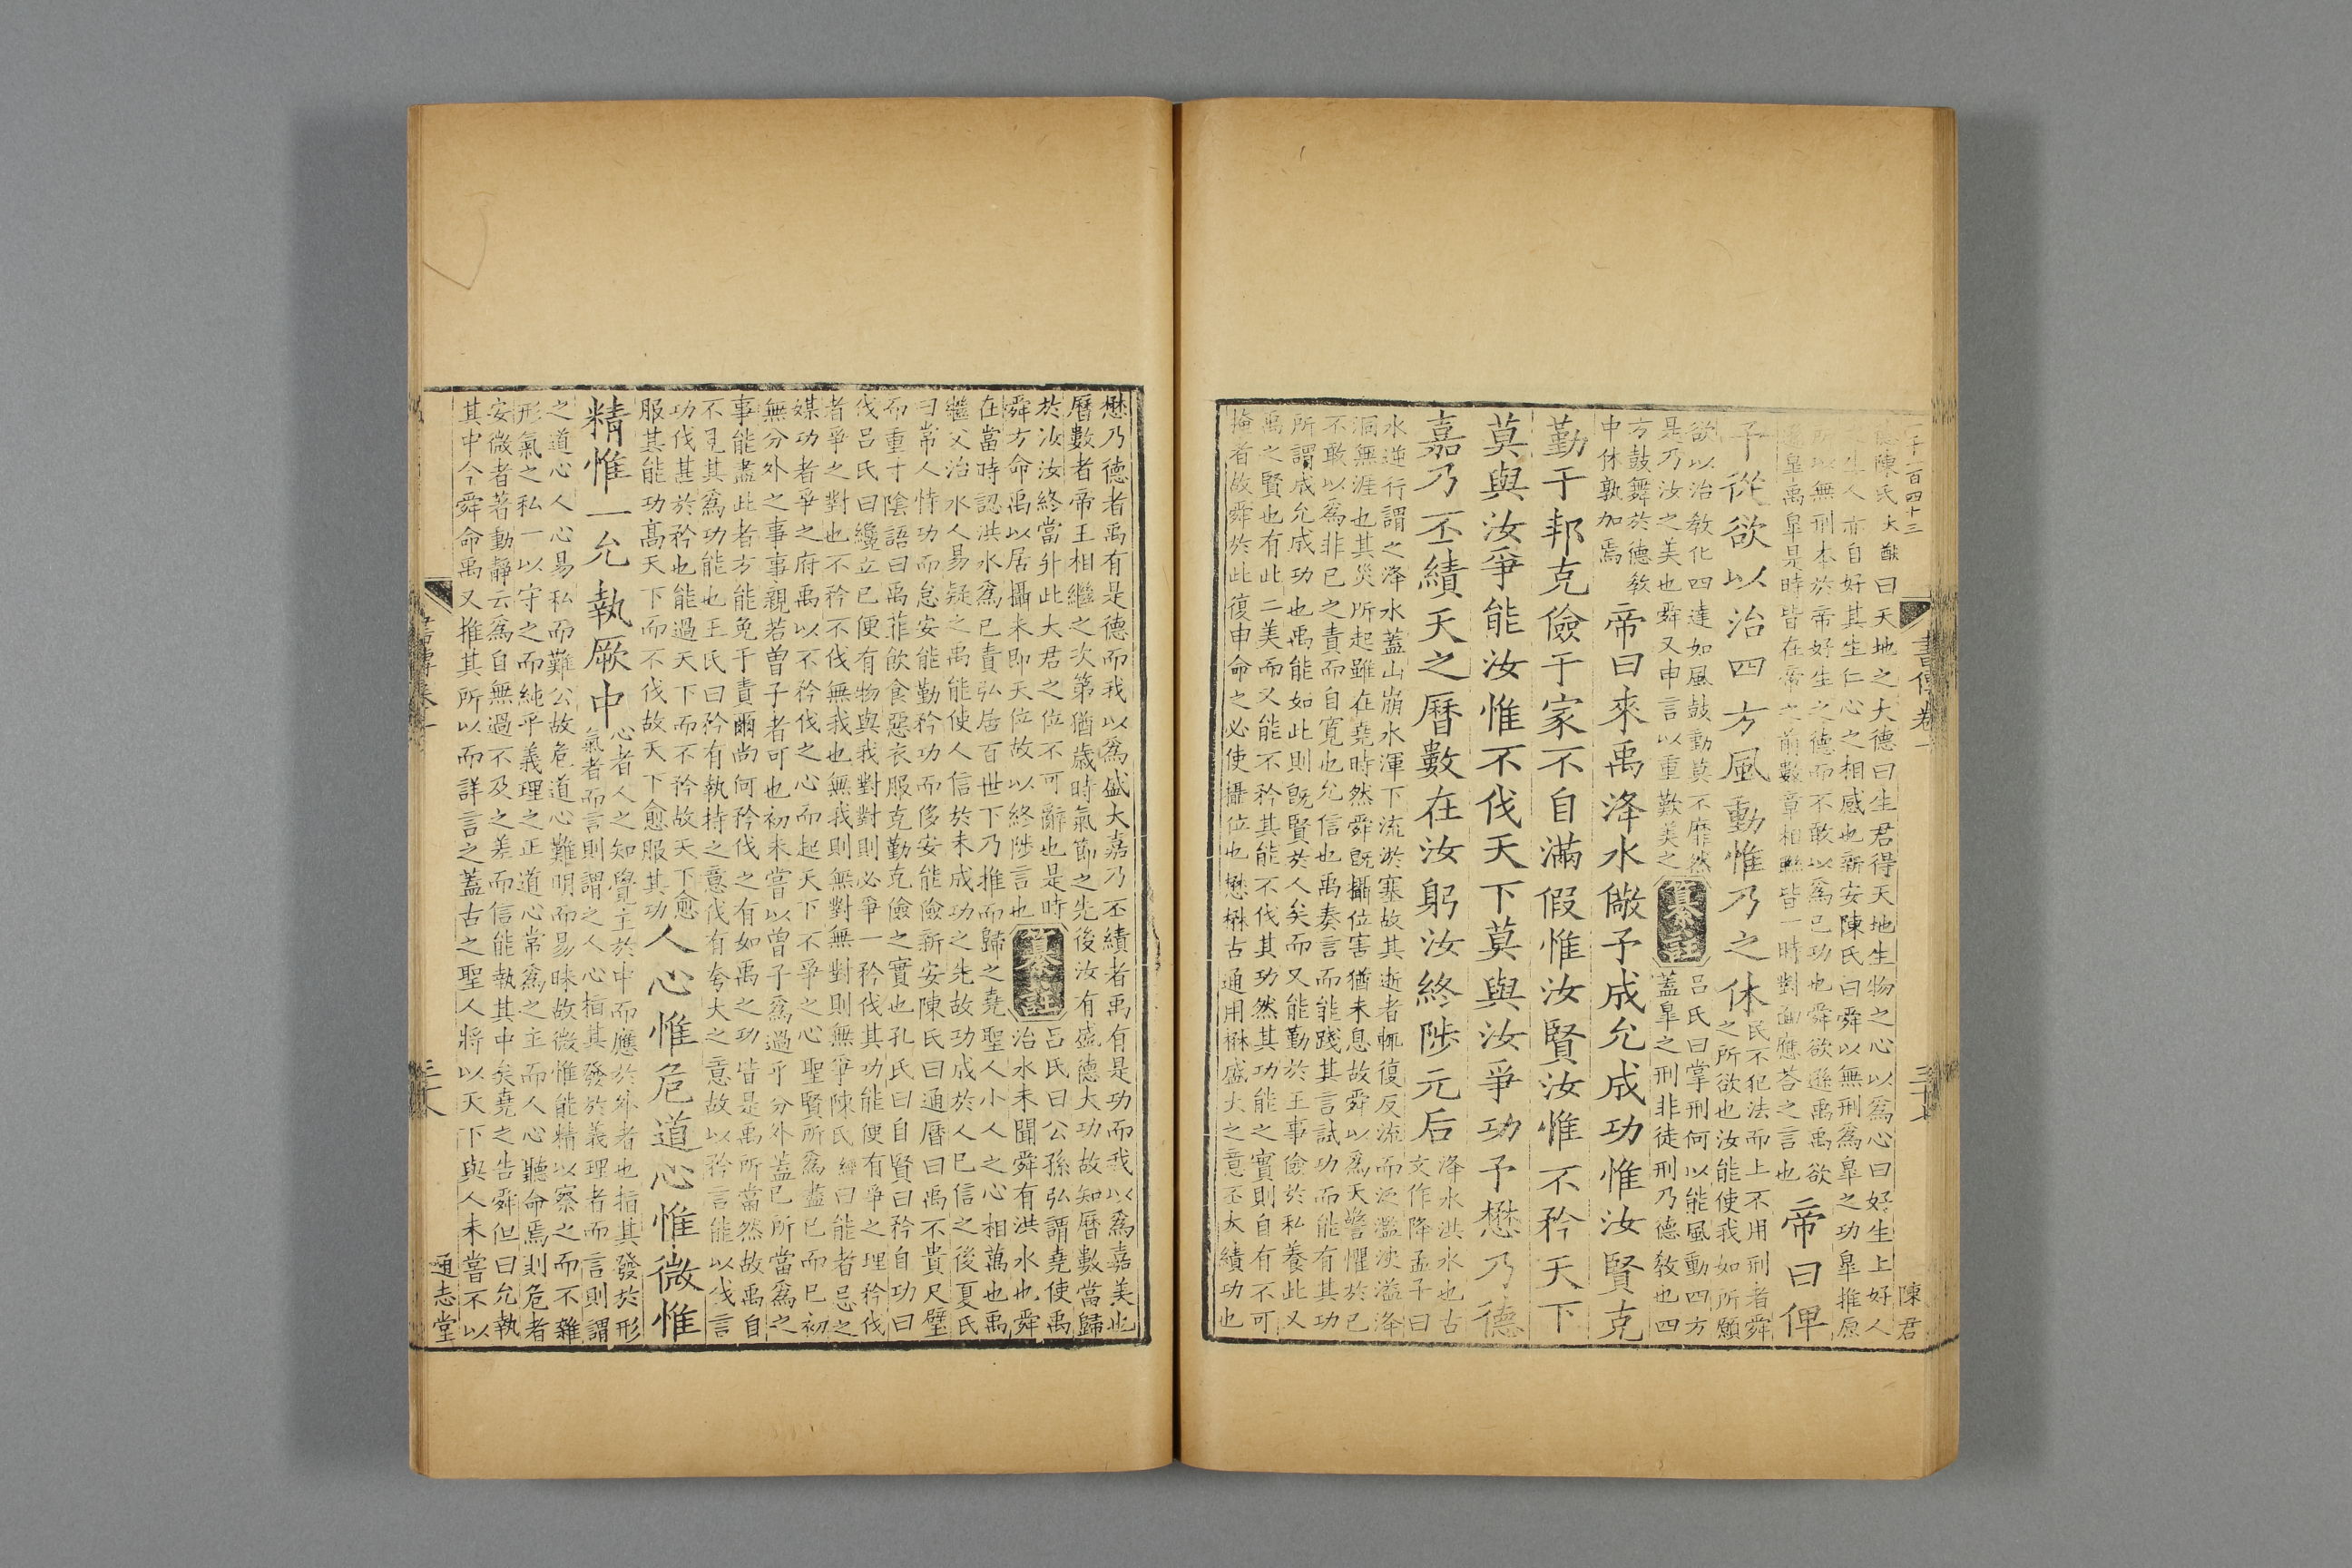 一千一百四十三
書傳卷一
三十七
陳君
陳氏大猷曰天地之大德曰生君得天地生物之心以爲心曰好生上好人
生人亦自好其生仁心之相感也新安陳氏曰舜以無刑爲臯之功臯推原
所以無刑本於帝好生之德而不敢以爲己功也舜欲遜禹禹欲
臯禹臯是時皆在帝之前數章相聯皆一時對面應荅之言也
帝曰俾
予從欲以治四方風動惟乃之休
民不犯法而上不用刑者舜
之所欲也汝能使我如所願
欲以治敎化四達如風鼓動莫不靡然
是乃汝之美也舜又申言以重歎美之
纂註
呂氏曰掌刑何以能風動四方
蓋臯之刑非徒刑乃德敎也四
方鼓舞於德敎
中休孰加焉
帝曰來禹洚水儆予成允成功惟汝賢克
勤于邦克儉于家不自滿假惟汝賢汝惟不矜天下
莫與汝爭能汝惟不伐天下莫與汝爭功予懋乃德
嘉乃丕績天之曆數在汝躬汝終陟元后
洚水洪水也古
文作降孟子曰
水逆行謂之洚水蓋山崩水渾下流淤塞故其逝者輒復反流而泛濫決溢洚
洞無涯也其災所起雖在堯時然舜旣攝位害猶未息故舜以爲天警懼於已
不敢以爲非已之責而自寬也允信也禹奏言而能踐其言試功而能有其功
所謂成允成功也禹能如此則旣賢於人矣而又能勤於王事儉於私養此又
禹之賢也有此二美而又能不矜其能不伐其功然其功能之實則自有不可
掩者故舜於此復申命之必使攝位也懋楙古通用楙盛大之意丕大績功也
懋乃德者禹有是德而我以爲盛大嘉乃丕績者禹有是功而我以爲嘉美也
曆數者帝王相繼之次第猶歲時氣節之先後汝有盛德大功故知曆數當歸
於汝汝終當升此大君之位不可辭也是時
舜方命禹以居攝未即天位故以終陟言也
纂註
呂氏曰公孫弘謂堯使禹
治水未聞舜有洪水也舜
在當時認洪水爲已責弘居百世下乃推而歸之堯聖人小人之心相萬也禹
繼父治水人易疑之禹能使人信於未成功之先故功成於人已信之後夏氏
曰常人恃功而怠安能勤矜功而侈安能儉新安陳氏曰通曆曰禹不貴尺璧
而重寸陰語曰禹菲飮食惡衣服克勤克儉之實也孔氏曰自賢曰矜自功曰
伐呂氏曰纔立已便有物與我對對則必爭一矜伐其功能便有爭之理矜伐
者爭之對也不矜不伐無我也無我則無對無對則無爭陳氏經曰能者忌之
媒功者爭之府禹以不矜伐之心而起天下不爭之心聖賢所爲盡已而已初
無分外之事事親若曾子者可也初未嘗以曾子爲過乎分外蓋已所當爲之
事能盡此者方能免于責爾尚何矜伐之有如禹之功皆是禹所當然故禹自
不見其爲功能也王氏曰矜有執持之意伐有夸大之意故以矜言能以伐言
功伐甚於矜也能過天下而不矜故天下愈
服其能功高天下而不伐故天下愈服其功
人心惟危道心惟微惟
精惟一允執厥中
心者人之知覺主於中而應於外者也指其發於形
氣者而言則謂之人心指其發於義理者而言則謂
之道心人心易私而難公故危道心難明而易昧故微惟能精以察之而不雜
形氣之私一以守之而純乎義理之正道心常爲之主而人心聽命焉則危者
安微者著動靜云爲自無過不及之差而信能執其中矣堯之告舜但曰允執
其中今舜命禹又推其所以而詳言之蓋古之聖人將以天下與人未嘗不以
書傳卷一
三十八
通志堂